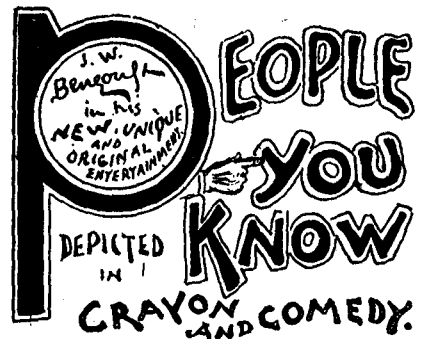 PEOPLE
J. W.
Bengough
in his
NEW, UNIQUE
AND
ORIGINAL
ENTERTAINMENT.
YOU
KNOW
DEPICTED
IN
CRAYON
AND COMEDY.